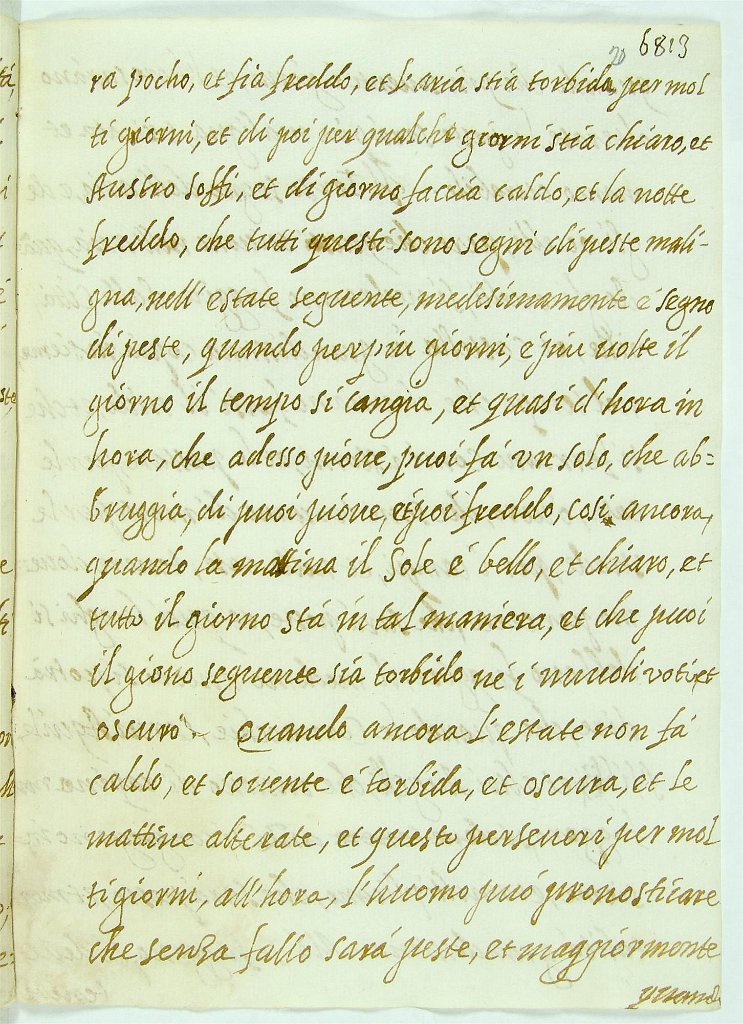 6813
20
ra pocho, et sia freddo, et l'aria stia torbida, per mol
ti giorni, et di poi per qualche giorni stia chiaro, et
Austro soffi, et di giorno faccia caldo, et la notte
freddo, che tutti questi sono segni di peste mali-
gna, nell'estate seguente, medesimamente é segno
di peste, quando per piu giorni, é piu uolte il
giorno il tempo si cangia, et quasi d'hora in
hora, che adesso pioue, puoi fá vn solo, che ab=
bruggia, di puoi pioue, et poi freddo, cosi ancora,
quando la mattina il Sole é bello, et chiaro, et
tutto il giorno stá in tal maniera, et che puoi
il giono seguente sia torbido né i nuuoli voti, et
oscuro. Quando ancora l'estate non fá
caldo, et souente é torbida, et oscura, et le
mattine alterate, et questo perseueri per mol
ti giorni, all'hora, l'huomo puó pronosticare
che senza fallo sará peste, et maggiormente
quand